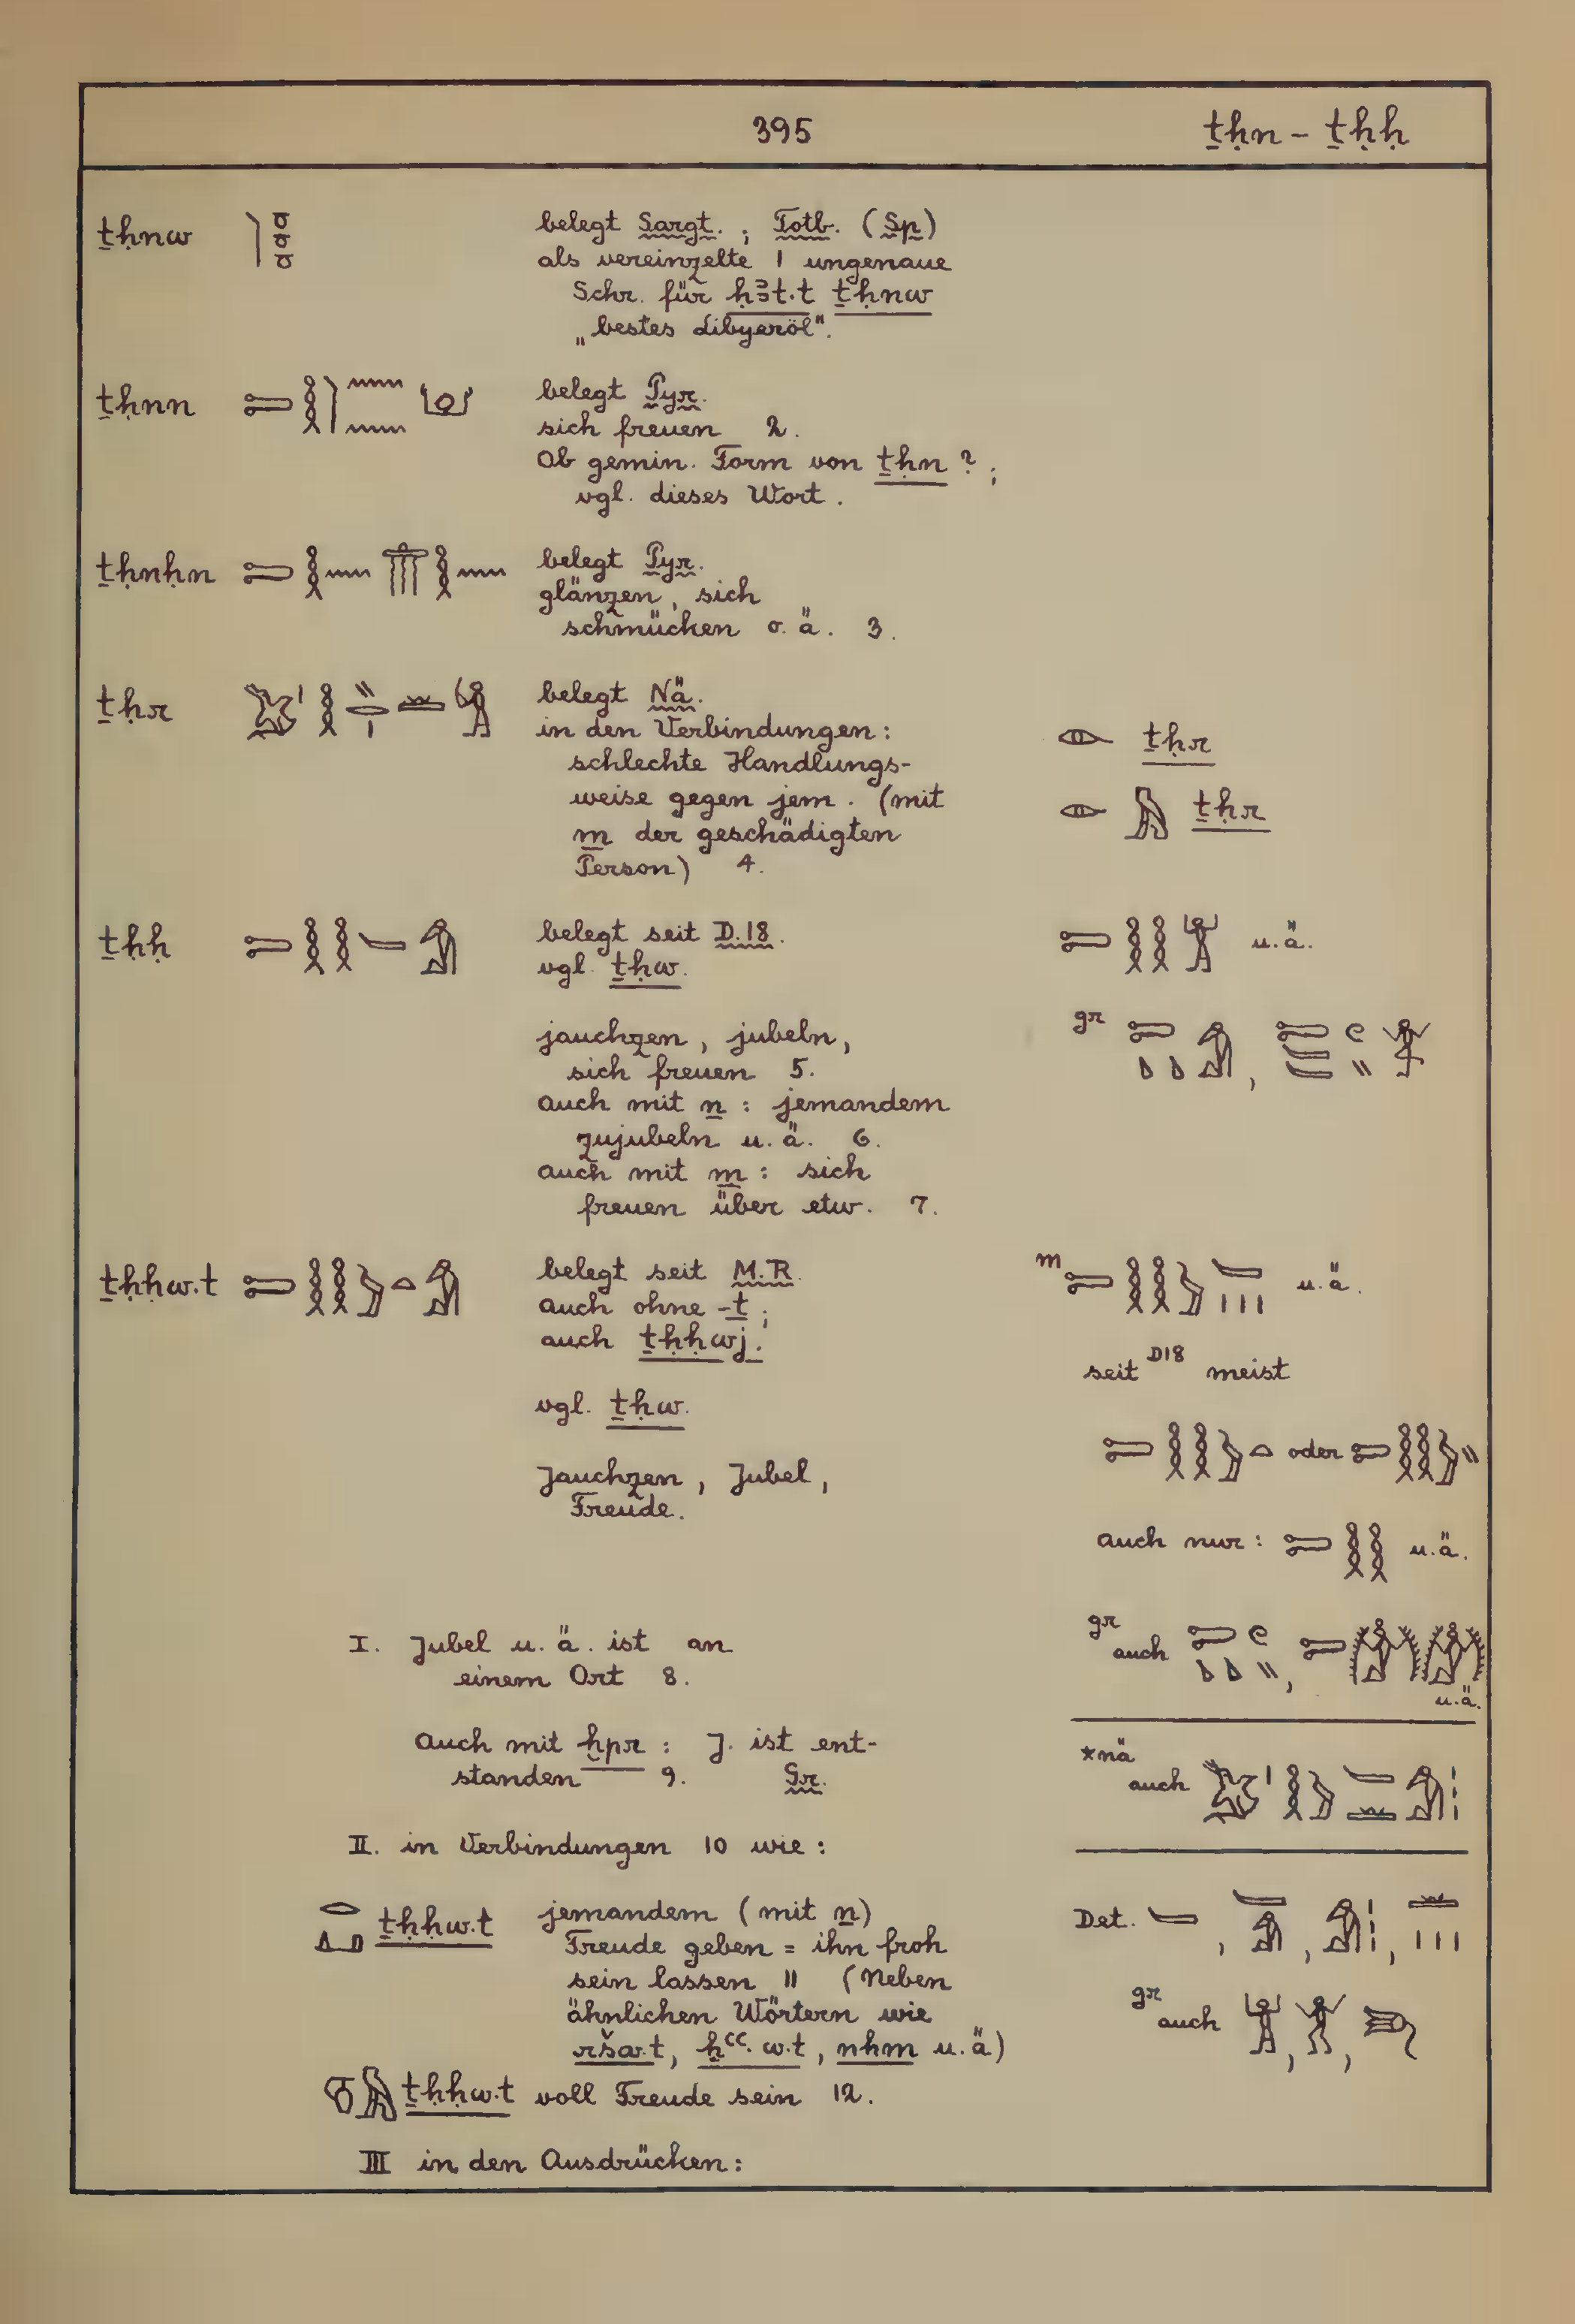 395 ṯḥn – ṯḥḥ
ṯḥnw
belegt Sargt. ; Totb. (Sp)
als vereinzelte 1 ungenaue
Schr. für ḥꜣt.t ṯḥnw
„bestes Libyeröl".
ṯḥnn
belegt Pyr.
sich freuen 2.
Ob gemin. Form von ṯḥn ? ;
vgl. dieses Wort.
ṯḥnḥn
belegt Pyr.
glänzen, sich
schmücken o. ä. 3.
ṯḥr
belegt Nä.
in den Verbindungen:
schlechte Handlungs-
weise gegen jem. (mit
m der geschädigten
Person) 4.
ṯḥr
ṯḥr
ṯḥḥ
belegt seit D.18.
vgl. ṯḥw.
jauchzen, jubeln,
sich freuen 5.
auch mit n : jemandem
zujubeln u. ä. 6.
auch mit m : sich
freuen über etw. 7.
u. ä.
gr
ṯḥḥw.t
belegt seit M.R.
auch ohne -t ;
auch ṯḥḥwj.
vgl. ṯḥw.
Jauchzen, Jubel,
Freude.
m u. ä.
seit D18 meist
oder
auch nur: u.ä.
gr auch
u.ä.
I. Jubel u. ä. ist an
einem Ort 8.
Auch mit ḫpr : J. ist ent-
standen 9. Gr.
*nä auch
II. in Verbindungen 10 wie:
ṯḥḥw.t jemandem (mit n)
Freude geben = ihn froh
sein lassen 11 (Neben
ähnlichen Wörtern wie
ršw.t, ḥꜥꜥ.w.t, nhm u.ä)
ṯḥḥw.t voll Freude sein 12.
Det.
gr auch
III in den Ausdrücken: